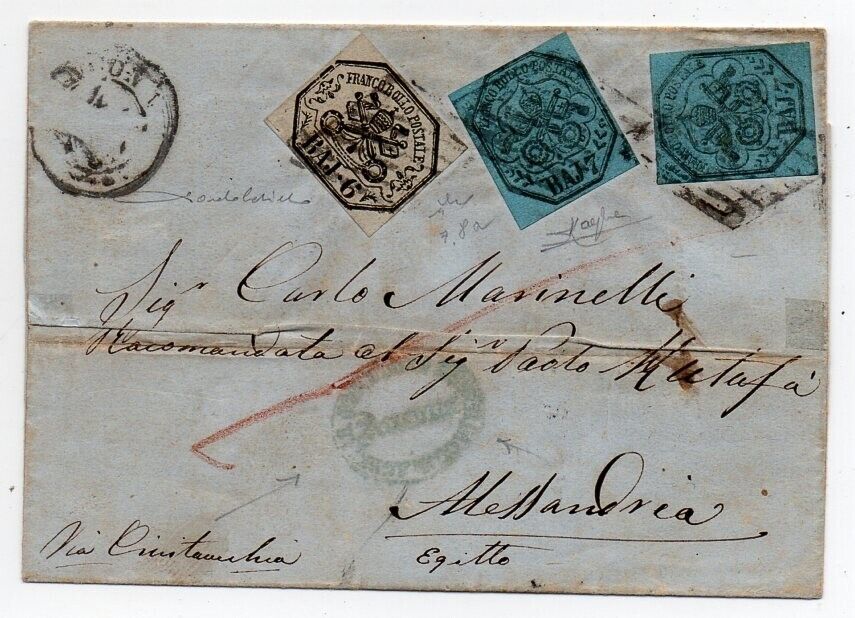 FRANCO BOLLO POSTALE
BAJ. 6
FRANCO BOLLO POSTALE
BAJ. 7
BAJ. 7
7. 8a
Sigr Carlo Marinelli
Racomandata al Sigr Paolo Mutafà
Alessandria
Egitto
Via Civitavechia